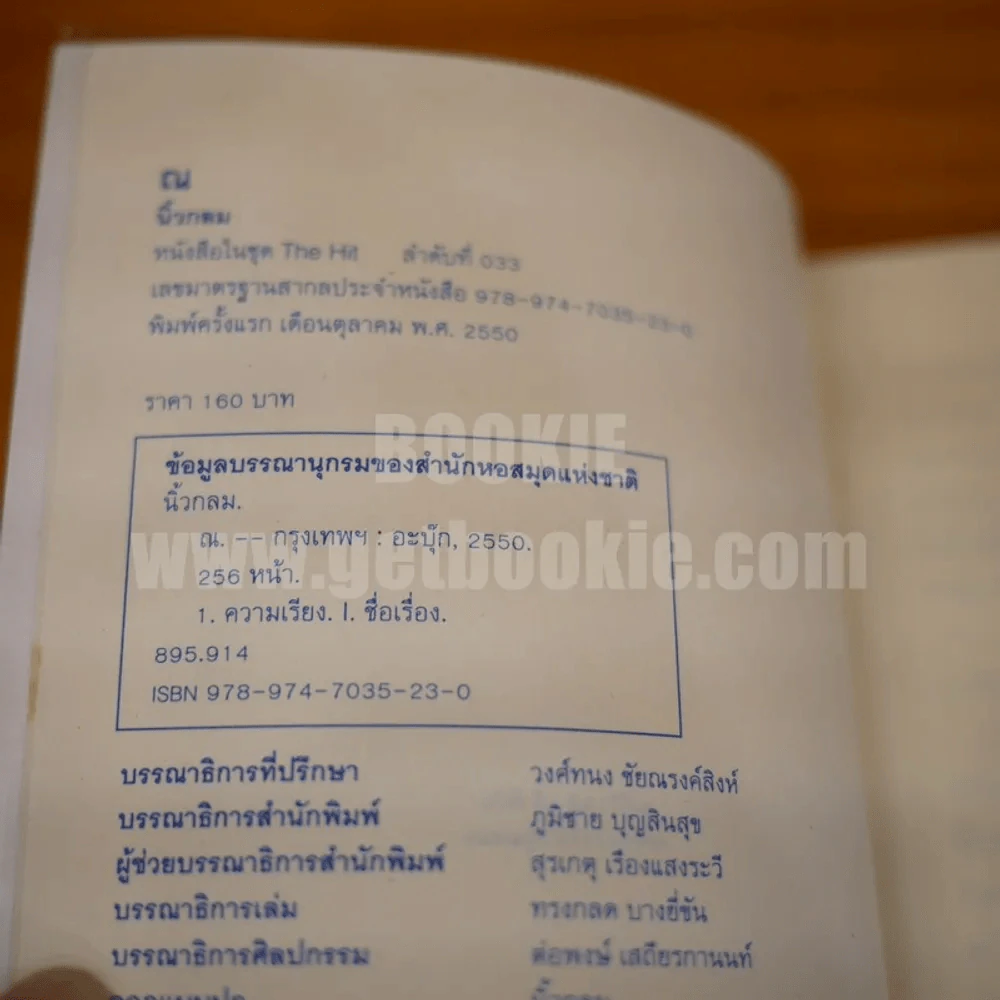 ณ
นิ้วกลม
หนังสือในชุด The Hit ลำดับที่ 033
เลขมาตรฐานสากลประจำหนังสือ 978-974-7035-23-0
พิมพ์ครั้งแรก เดือนตุลาคม พ.ศ. 2550
ราคา 160 บาท
BOOKIE
ข้อมูลบรรณานุกรมของสำนักหอสมุดแห่งชาติ
นิ้วกลม.
ณ. -- กรุงเทพฯ : อะบุ๊ก, 2550.
www.getbookie.com
256 หน้า.
1. ความเรียง. I. ชื่อเรื่อง.
895.914
ISBN 978-974-7035-23-0
บรรณาธิการที่ปรึกษา วงศ์ทนง ชัยณรงค์สิงห์
บรรณาธิการสำนักพิมพ์ ภูมิชาย บุญสินสุข
ผู้ช่วยบรรณาธิการสำนักพิมพ์ สุรเกตุ เรืองแสงระวี
บรรณาธิการเล่ม ทรงกลด บางยี่ขัน
บรรณาธิการศิลปกรรม ต่อพงษ์ เสถียรกานนท์